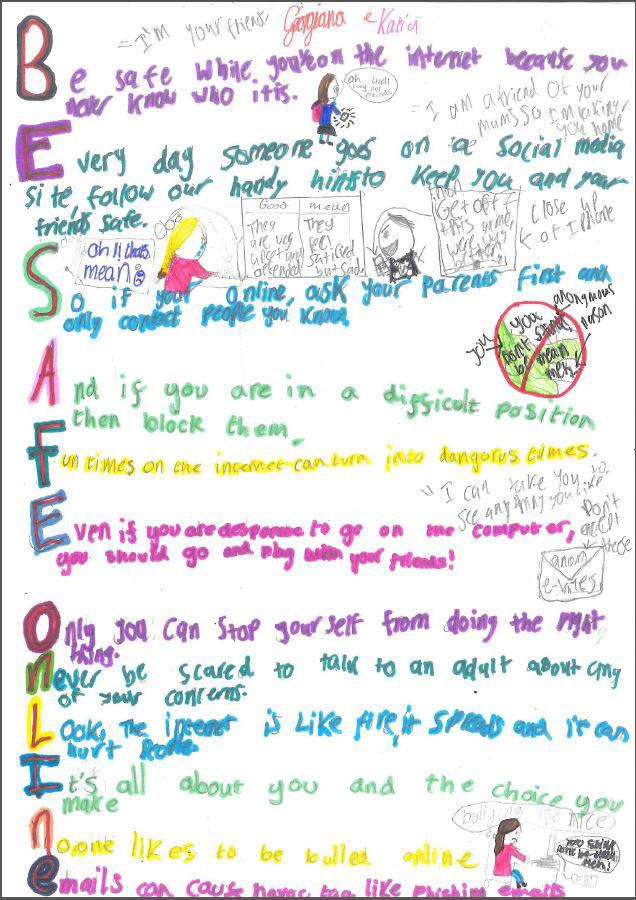 = I'm your friend Georgiana e Katici
Be safe while you're on the internet because you
never know who it is.
oh well
= I am a friend of your
mums so I'm taking
you home
Every day someone goes on a Social media
site, follow our handy hints to keep you and your
friends safe.
Good mean
They They
are very feel
upset and satisfied
offended but sad
Get off
close up
of Iphone
oh thats
mean
So if your online, ask your parents first and
only contact people you know
anonymous
person
you
you
Don't
mean
And if you are in a difficult position
then block them.
Fun times on the internet can turn into dangorus times.
"I can take you to
see anything you like
Don't
accept
these
Even if you are desperate to go on the computer,
you should go and play with your friends!
anom
e-vites
Only you can stop yourself from doing the right
thing.
Never be scared to talk to an adult about any
of your concerns.
Look, The internet is like fire, it spreads and it can
hurt People.
It's all about you and the choice you
make
bullying nice
No one likes to be bulled online
you stink
emails can cause havoc too like phishing emails